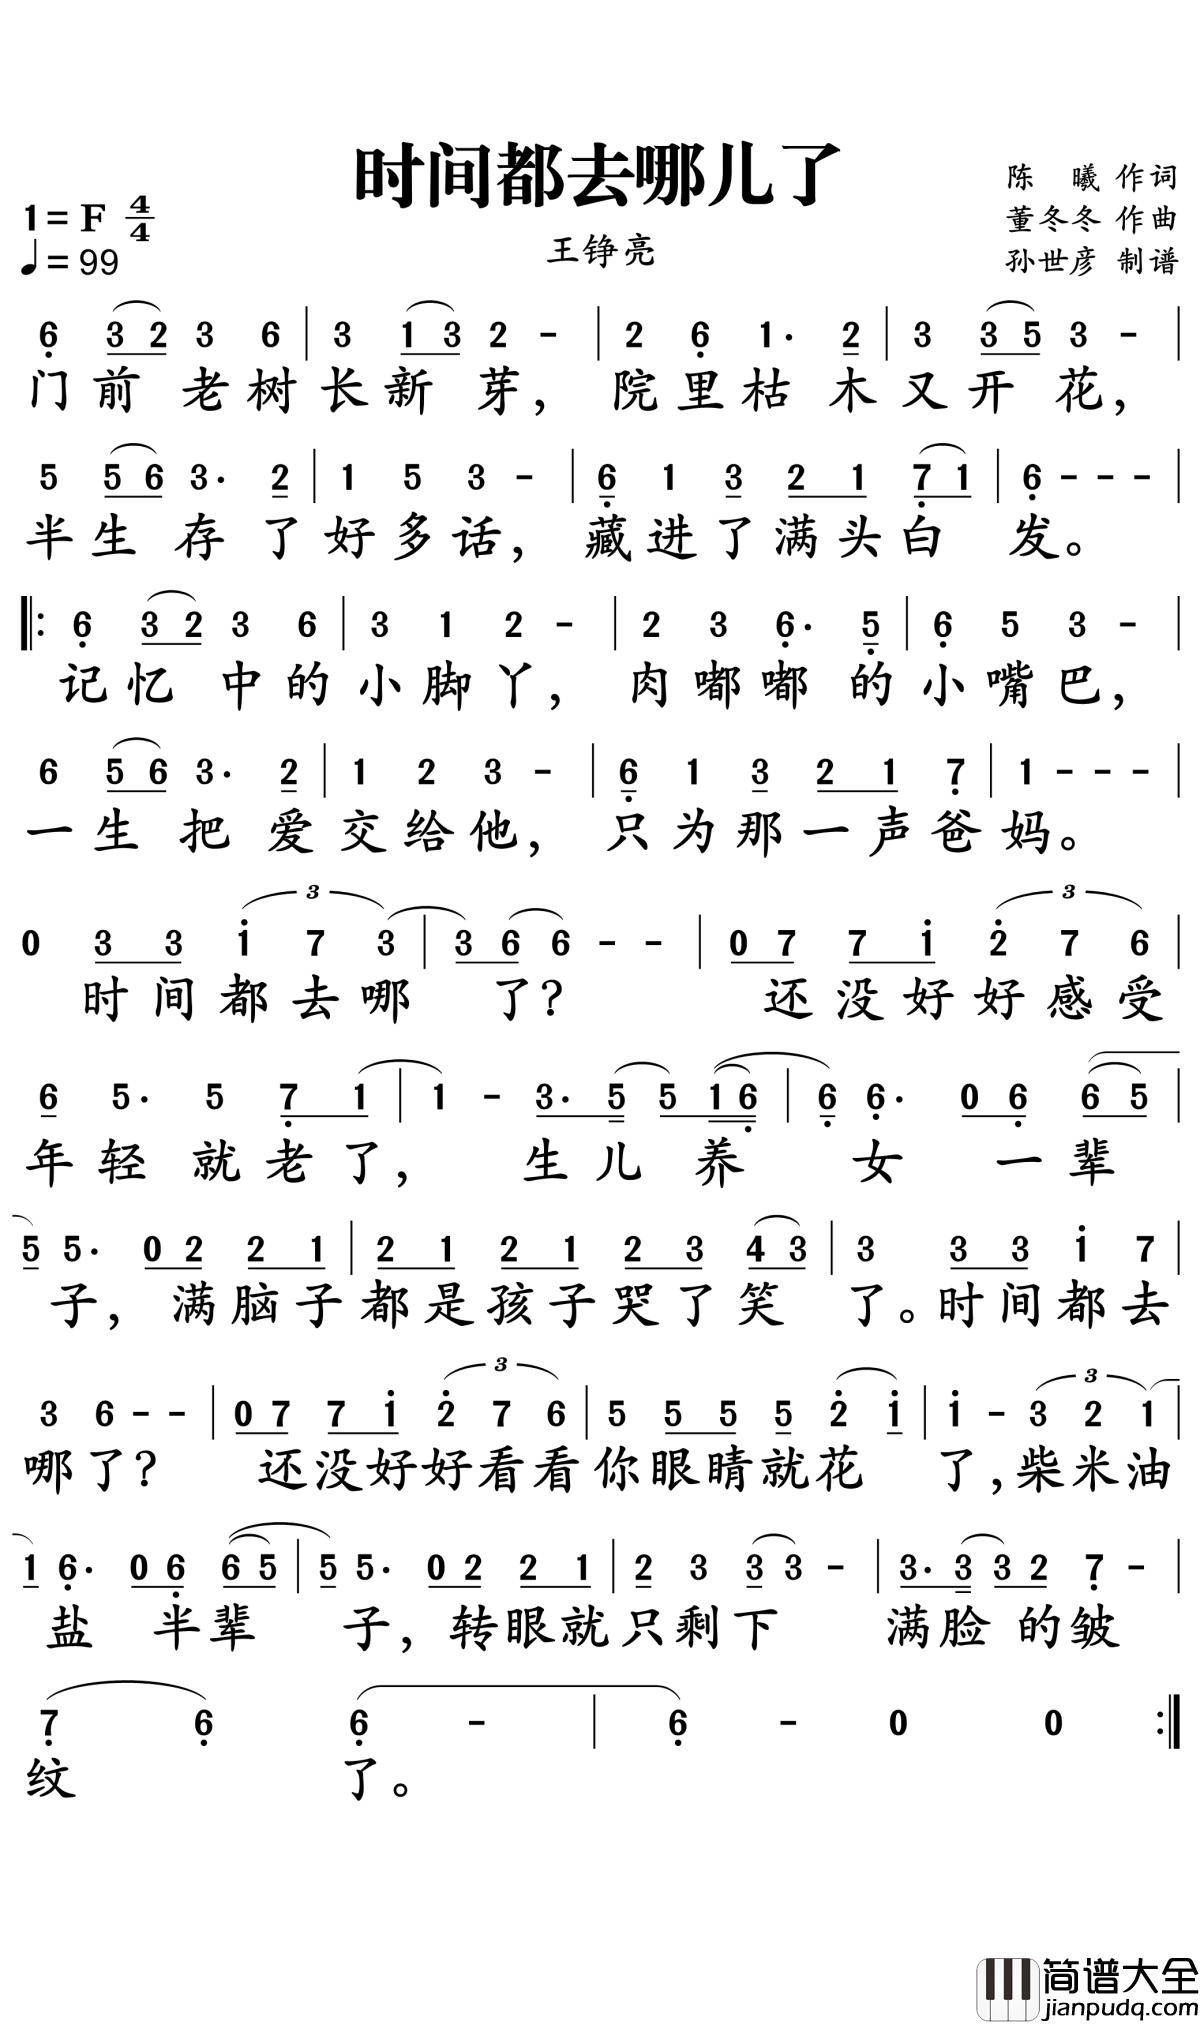 时间都去哪儿了
陈 曦 作词
1=F 4/4
董冬冬 作曲
♩=99
王铮亮
孙世彦 制谱
6 3 2 3 6 | 3 1 3 2 - | 2 6 1· 2 | 3 3 5 3 - |
门前 老树长新 芽，院里枯 木又开 花，
5 5 6 3· 2 | 1 5 3 - | 6 1 3 2 1 7 1 | 6 - - - |
半生 存 了好多话，藏进了满头白 发。
‖: 6 3 2 3 6 | 3 1 2 - | 2 3 6· 5 | 6 5 3 - |
记忆 中的小脚丫，肉嘟嘟 的小嘴巴，
6 5 6 3· 2 | 1 2 3 - | 6 1 3 2 1 7 | 1 - - - |
一生 把 爱交给他，只为那一声爸妈。
3 3
0 3 3 1 7 3 | 3 6 6 - - | 0 7 7 1 2 7 6 |
时间都去哪 了？ 还没好好感受
6 5· 5 7 1 | 1 - 3· 5 5 1 6 | 6 6· 0 6 6 5 |
年轻 就老了， 生儿 养 女 一辈
5 5· 0 2 2 1 | 2 1 2 1 2 3 4 3 | 3 3 3 1 7 |
子，满脑子都是孩子哭了笑 了。时间都去
3 3
3 6 - - | 0 7 7 1 2 7 6 | 5 5 5 5 2 1 | 1 - 3 2 1 |
哪了？ 还没好好看看你眼睛就花 了，柴米油
1 6· 0 6 6 5 | 5 5· 0 2 2 1 | 2 3 3 3 - | 3· 3 3 2 7 - |
盐 半辈 子，转眼就只剩下 满脸 的皱
7 6 6 - | 6 - 0 0 :‖
纹 了。
简谱大全
jianpudq.com